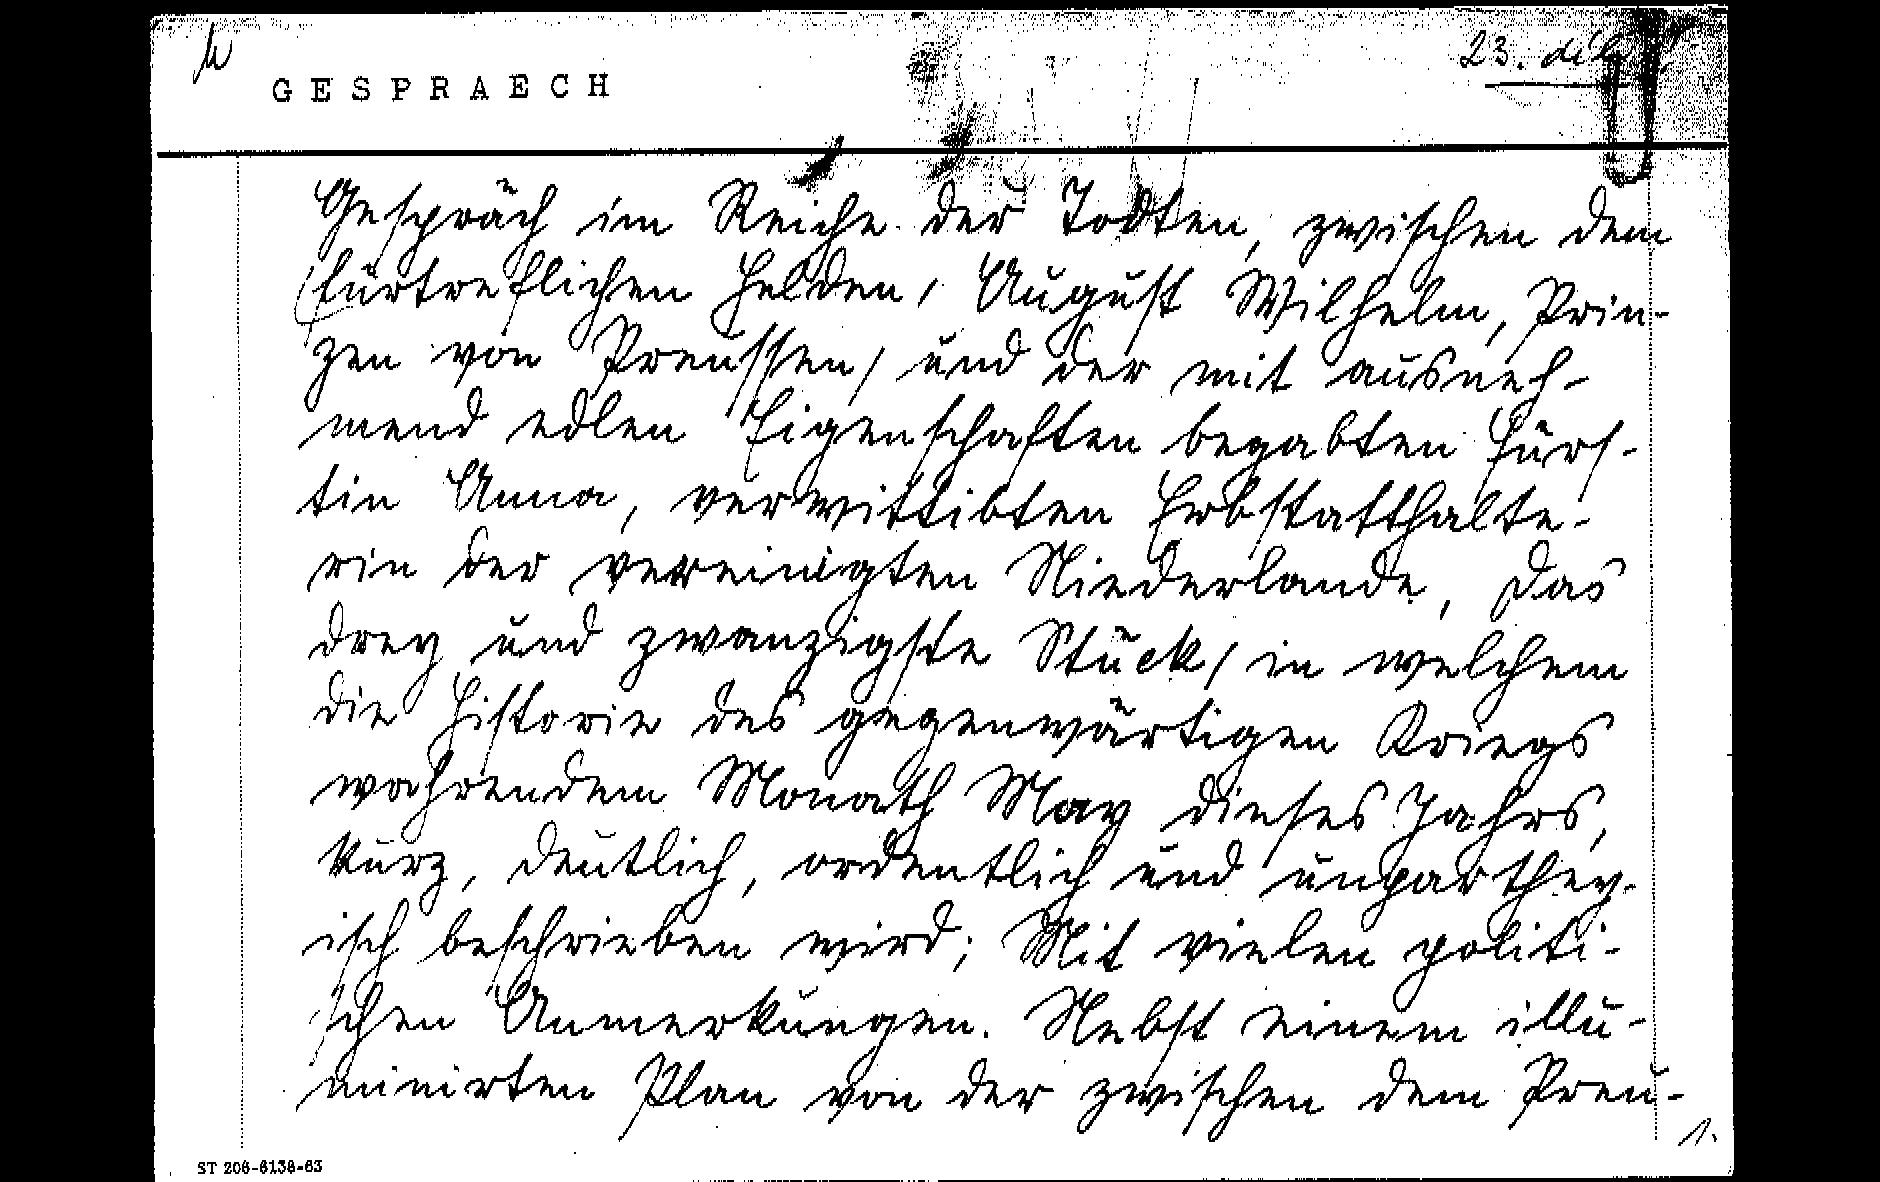 23. díl
GESPRAECH
Gespräch im Reiche der Todten, zwischen dem
fürtreflichen Helden, August Wilhelm, Prin-
zen von Preussen, und der mit ausneh-
mend edlen Eigenschaften begabten Fürs-
tin Anna, verwittibten Erbstatthalte-
rin der vereinigten Niederlande, Das
drey und zwanzigste Stück, in welchem
die Historie des gegenwärtigen Kriegs
wahrendem Monath May dieses Jahrs,
kurz, deutlich, ordentlich und unparthey-
isch beschrieben wird; Mit vielen politi-
schen Anmerkungen. Nebst einem illu-
minirten Plan von der zwischen dem Preu-
1.
ST 206-6138-63